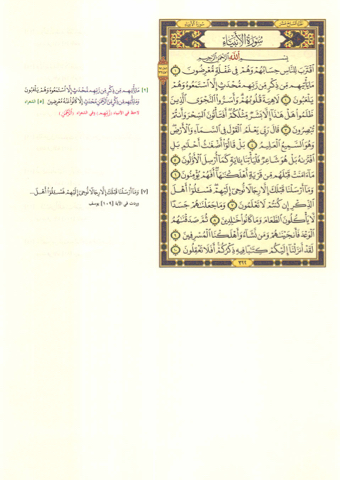 سورة الأنبياء
بسم الله الرحمن الرحيم
ٱقترب للناس حسابهم وهم في غفلة معرضون ١
ما يأتيهم من ذكر من ربهم محدث إلا ٱستمعوه وهم
يلعبون ٢ لاهية قلوبهم وأسروا ٱلنجوى ٱلذين
ظلموا هل هذا إلا بشر مثلكم أفتأتون ٱلسحر وأنتم
تبصرون ٣ قال ربي يعلم ٱلقول في ٱلسماء وٱلأرض
وهو ٱلسميع ٱلعليم ٤ بل قالوا أضغاث أحلام بل
ٱفتراه بل هو شاعر فليأتنا بآية كما أرسل ٱلأولون ٥
ما ءامنت قبلهم من قرية أهلكناها أفهم يؤمنون ٦
وما أرسلنا قبلك إلا رجالا نوحي إليهم فسـٔلوا أهل
ٱلذكر إن كنتم لا تعلمون ٧ وما جعلناهم جسدا
لا يأكلون ٱلطعام وما كانوا خالدين ٨ ثم صدقناهم
ٱلوعد فأنجيناهم ومن نشاء وأهلكنا ٱلمسرفين ٩
لقد أنزلنا إليكم كتابا فيه ذكركم أفلا تعقلون ١٠
٣٢٢
[٢] ما يأتيهم من ذكر من ربهم محدث إلا ٱستمعوه وهم يلعبون
وما يأتيهم من ذكر من ٱلرحمن محدث إلا كانوا عنه معرضين [٥] الشعراء
[٧] وما أرسلنا قبلك إلا رجالا نوحي إليهم فسـٔلوا أهل...
وردت في الآية [١٠٩] يوسف